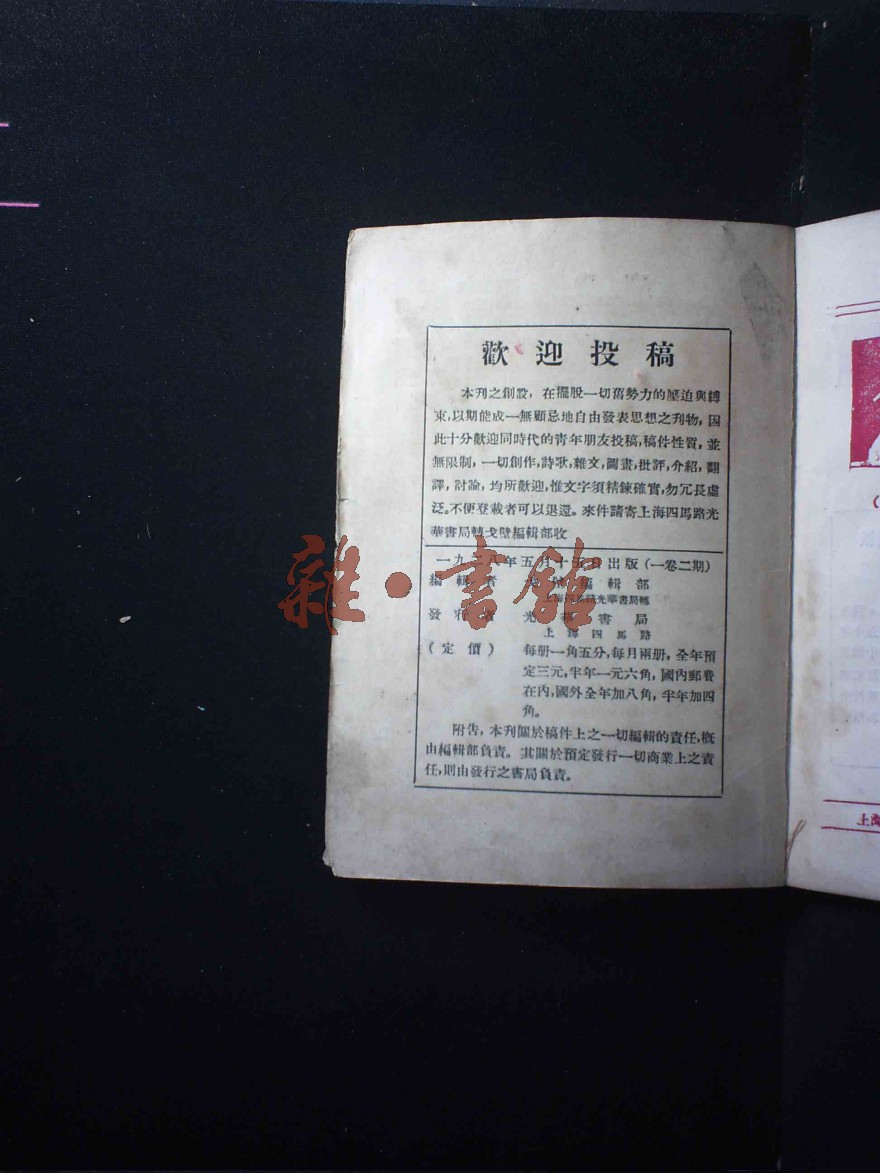 歡迎投稿
本刊之創設，在擺脫一切舊勢力的壓迫與縛
束，以期能成一無顧忌地自由發表思想之刊物，因
此十分歡迎同時代的青年朋友投稿，稿件性質，並
無限制，一切創作，詩歌，雜文，圖畫，批評，介紹，翻
譯，討論，均所歡迎，惟文字須精鍊確實，勿冗長虛
泛。不便登載者可以退還。來件請寄上海四馬路光
華書局轉戈壁編輯部收
一九二八年五月十五日出版（一卷二期）
編輯者 戈壁編輯部
上海四馬路光華書局轉
發行者 光華書局
上海四馬路
（定價） 每册一角五分，每月兩册，全年預
定三元，半年一元六角，國內郵費
在內，國外全年加八角，半年加四
角。
附告，本刊關於稿件上之一切編輯的責任，概
由編輯部負責。其關於預定發行一切商業上之責
任，則由發行之書局負責。
雜·書館
上海